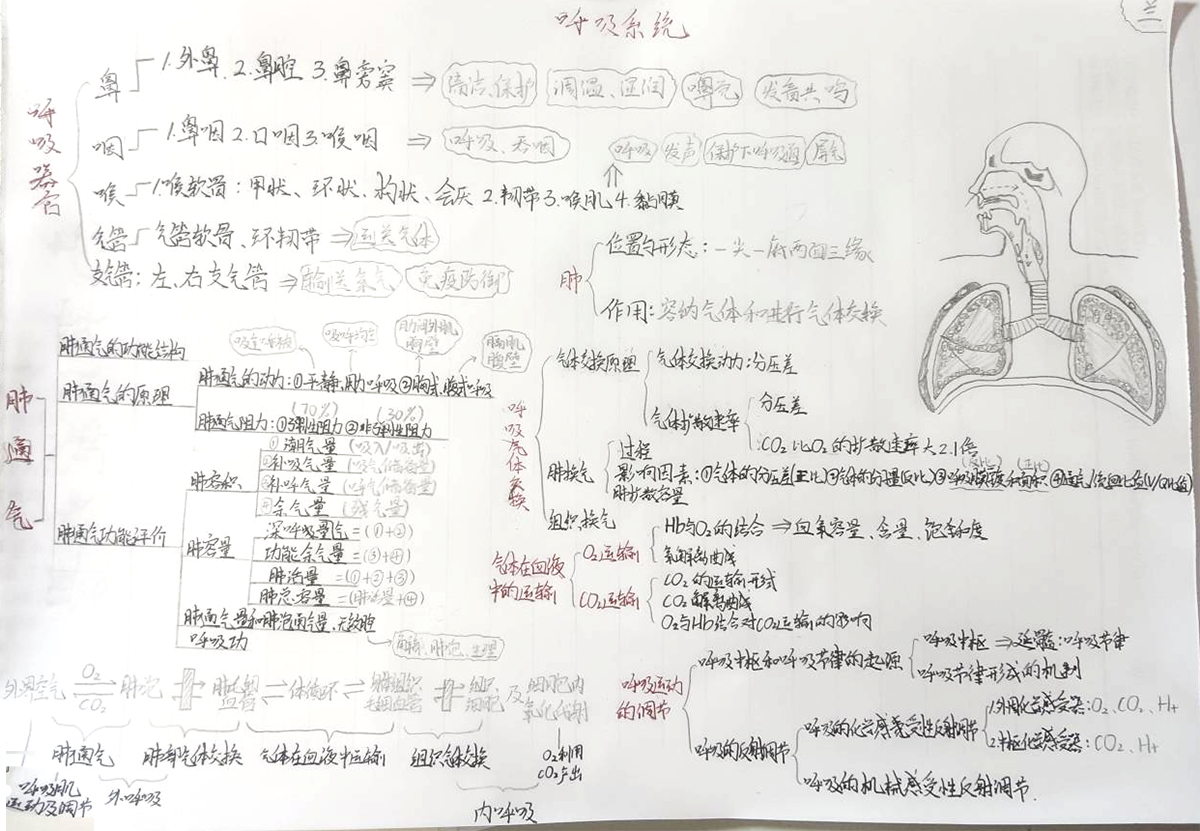 呼吸系统
呼吸器官
鼻 1.外鼻 2.鼻腔 3.鼻旁窦 ⇒ 清洁、保护 调温、湿润 嗅气 发音共鸣
咽 1.鼻咽 2.口咽 3.喉咽 ⇒ 呼吸、吞咽
呼吸 发声 保护下呼吸道 屏气
喉 1.喉软骨：甲状、环状、杓状、会厌 2.韧带 3.喉肌 4.黏膜
气管 气管软骨、环韧带 ⇒ 气体
支气管：左、右支气管 ⇒ 免疫防御
肺
位置与形态：一尖一底两面三缘
作用：容纳气体和进行气体交换
肺通气
肺通气的功能结构
肺通气的原理
肋间外肌 胸壁
膈肌 腹壁
肺通气的动力：①平静,用力呼吸 ②胸式,腹式呼吸
(70%) (30%)
肺通气阻力：①弹性阻力 ②非弹性阻力
肺通气功能评价
肺容积
①潮气量 (吸入/吸出)
②补吸气量 (吸气储备量)
③补呼气量 (呼气储备量)
④余气量 (残气量)
肺容量
深呼吸量气=(①+②)
功能余气量=(③+④)
肺活量=(①+②+③)
肺总容量=(肺活量+④)
肺通气量和肺泡通气量、无效腔
解剖、肺泡、生理
呼吸功
呼吸气体交换
气体交换原理
气体交换动力：分压差
气体扩散速率
分压差
CO₂比O₂的扩散速率大2.1倍
肺换气
过程
影响因素：①气体的分压差(正比) ②气体的分子量(反比) ③呼吸膜厚度(反比)和面积(正比) ④通气/血流比值(V/Q比值)
肺扩散容量
组织换气
气体在血液中的运输
O₂运输
Hb与O₂的结合 ⇒ 血氧容量、含量、饱和度
氧解离曲线
CO₂运输
CO₂的运输形式
CO₂解离曲线
O₂与Hb结合对CO₂运输的影响
呼吸运动的调节
呼吸中枢和呼吸节律的起源
呼吸中枢 ⇒ 延髓：呼吸节律
呼吸节律形成的机制
呼吸的反射调节
呼吸的化学感受性反射调节
1.外周化学感受器：O₂、CO₂、H+
2.中枢化学感受器：CO₂、H+
呼吸的机械感受性反射调节
外界空气 O₂ CO₂ 肺泡 肺毛细血管 体循环 组织毛细血管 组织细胞及细胞内氧化代谢
肺通气 肺部气体交换 气体在血液中运输 组织气体交换 O₂利用 CO₂产出
呼吸肌运动及调节 外呼吸 内呼吸